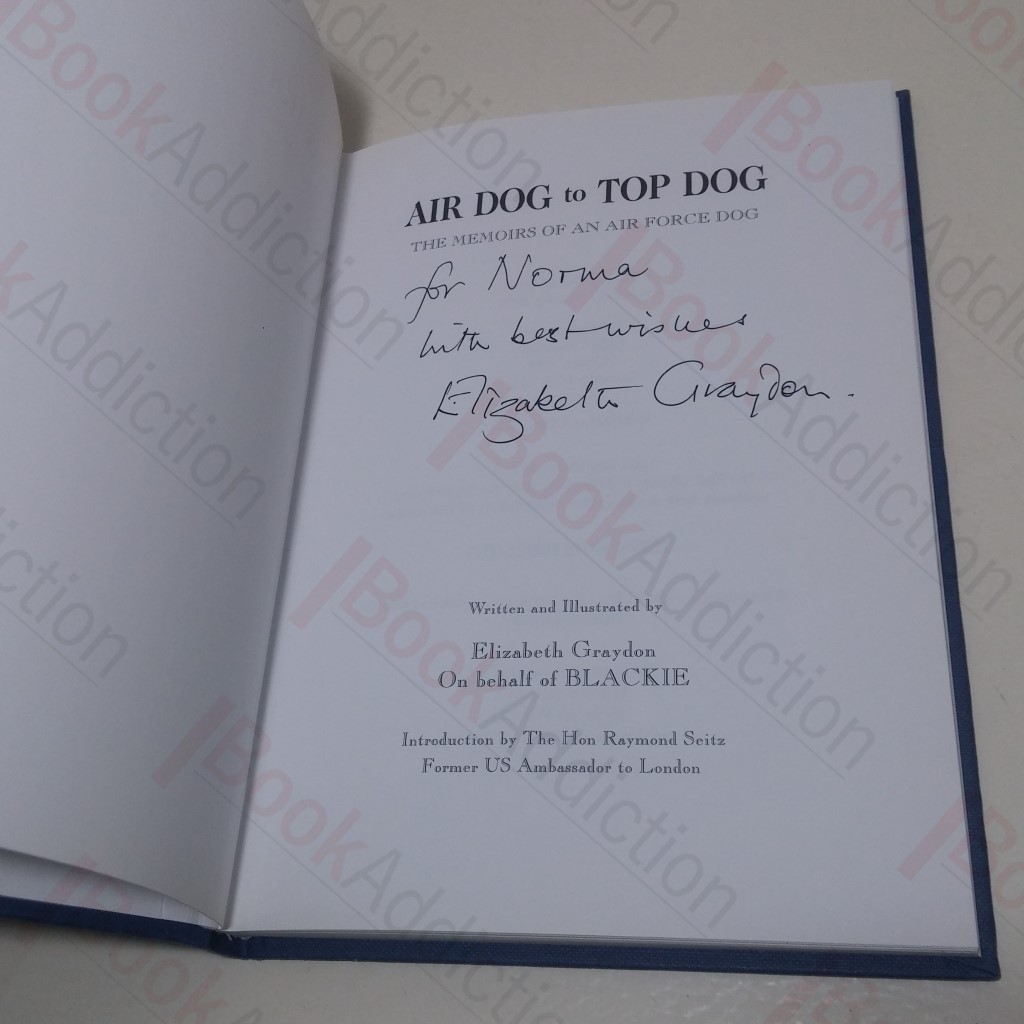 AIR DOG to TOP DOG
THE MEMOIRS OF AN AIR FORCE DOG
for Norma
with best wishes
Elizabeth Graydon.
Written and Illustrated by
Elizabeth Graydon
On behalf of BLACKIE
Introduction by The Hon Raymond Seitz
Former US Ambassador to London
BookAddiction